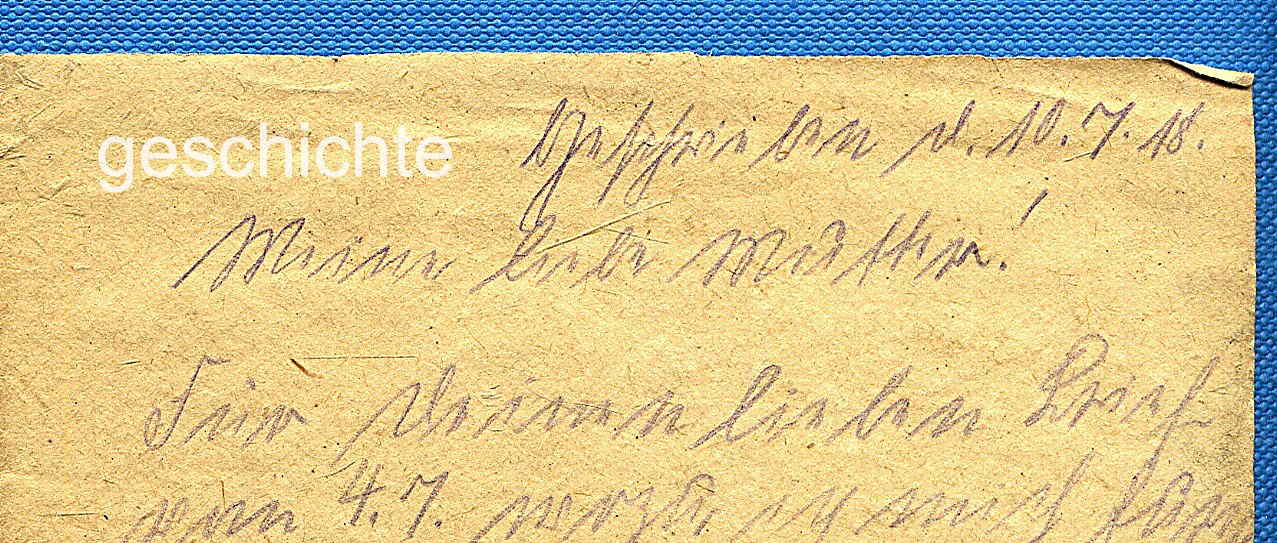 geschichte
Geschrieben d. 10.7.18.
Meine liebe Mutter!
Für deinen lieben Brief
vom 4.7. wozu ich mich